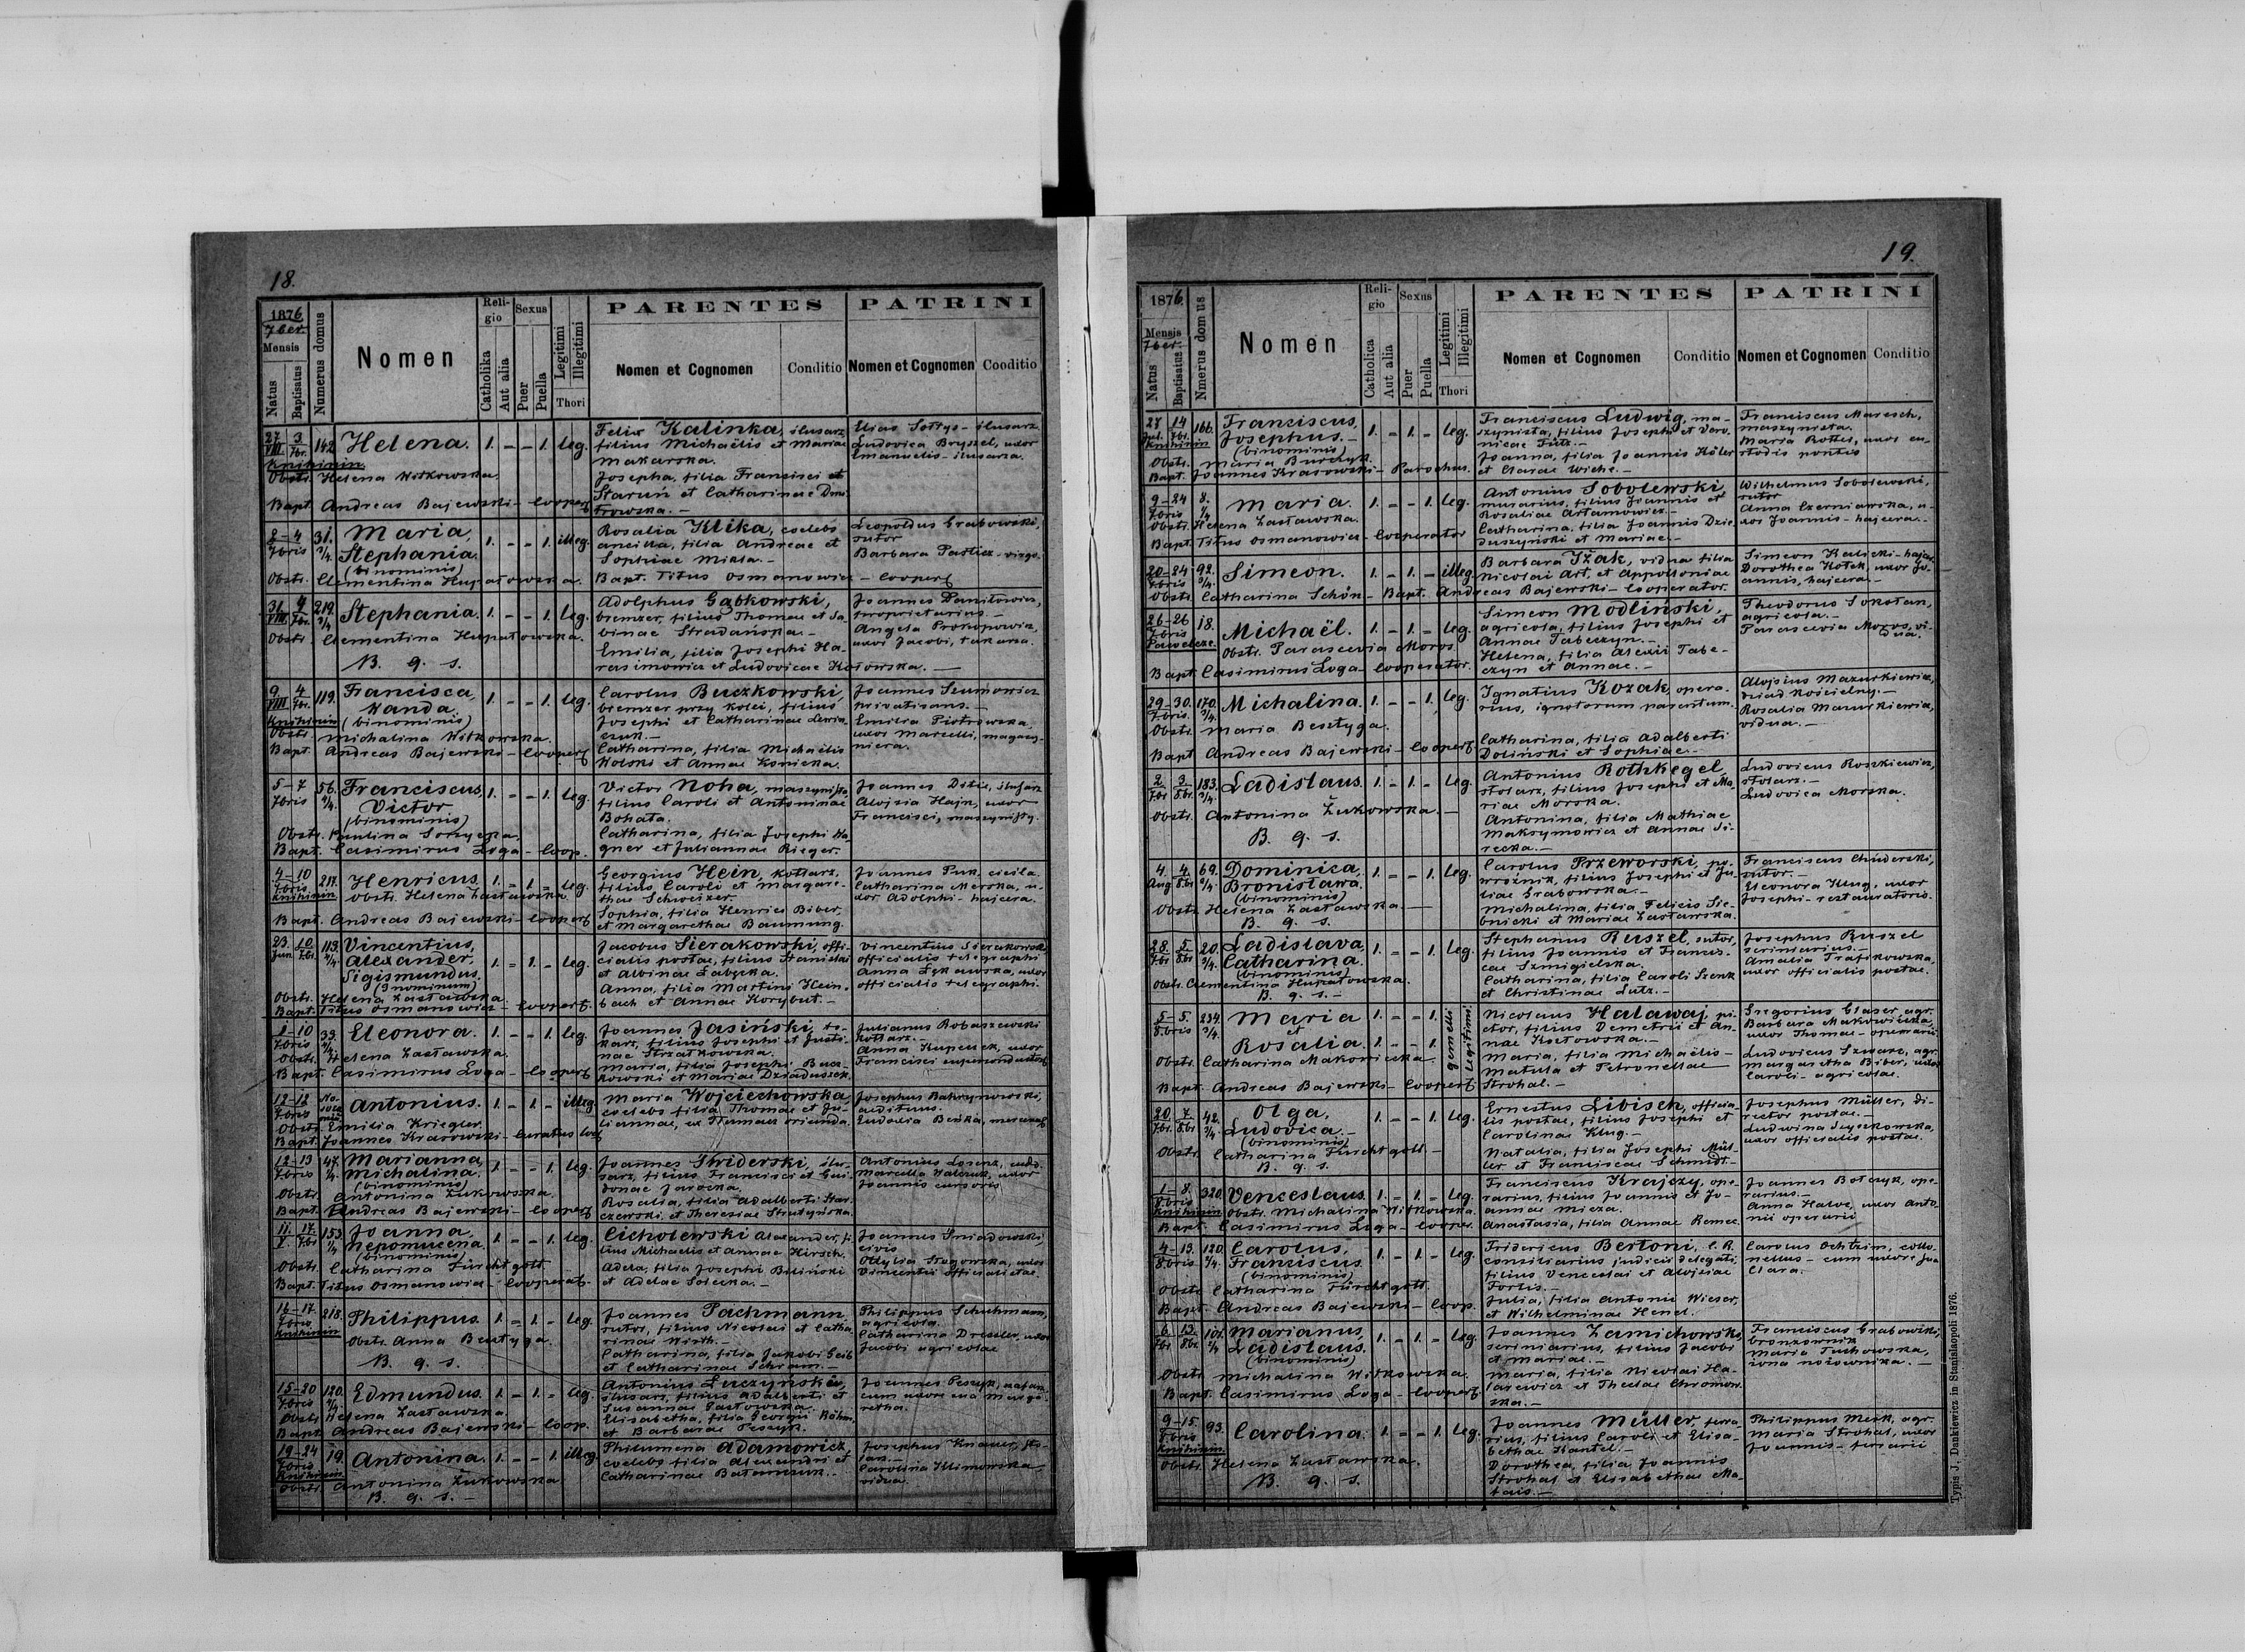 18.
1876
7ber.
Mensis
Natus
Baptisatus
Numerus domus
Nomen
Religio
Catholika
Aut alia
Sexus
Puer
Puella
Legitimi
Illegitimi
Thori
PARENTES
Nomen et Cognomen
Conditio
PATRINI
Nomen et Cognomen
Conditio
27 VIII 3 7br. 142 Helena. 1. - - 1. leg.
Knihinin.
Obstr. Helena Witkowska
Bapt. Andreas Bajewski - Cooper
Felix Kalinka, slusarz,
filius Michaëlis et Mariae
Makarska.
Josepha, filia Francisci et
Starun et Catharinae Dmi
trowska. -
Elias Sołtys - slusarz
Ludovica Bryszel, uxor
Emanuelis - slusarza.
2 - 4 7bris 31. 3/4 Maria,
Stephania.
(binominis)
1. - - 1. illeg.
Obstr. Clementina Hupałowska.
Rosalia Klika, coelebs
ancilla, filia Andreae et
Sophiae Mikla. -
Bapt. Titus Osmanowicz - Cooper
Leopoldus Grabowski,
sutor
Barbara Pasticz - virgo.
31. VIII. 4 7br. 219. 3/4 Stephania. 1. - - 1. leg.
Obstr. Clementina Hupałowska.
B. q. s.
Adolphus Gąbkowski,
bremzer, filius Thomae et Sa
binae Stradańska. -
Emilia, filia Josephi Ha-
rasimowicz et Ludovicae Kosowska. -
Joannes Daniłowicz,
proprietarius. -
Angela Prokopowicz,
uxor Jacobi, tokarza.
9 VIII 4 7br. 119. Francisca,
Wanda.
(binominis)
1. - - 1. leg.
Knihinin
Obstr. Michalina Witkowska.
Bapt. Andreas Bajewski - Cooper
Carolus Buczkowski,
bremzer przy kolei, filius
Josephi et Catharinae Lewin
czuk. -
Catharina, filia Michaëlis
Wolski et Annae Konicka.
Joannes Szumowicz
privatisans. -
Emilia Piotrowska
uxor Marcelli, magazy-
niera.
5 - 7 7bris 56. 4/4. Franciscus,
Victor
(binominis)
1. - - 1. leg.
Obstr. Paulina
Bapt. Casimirus Loga - Coop.
Victor Noha, maszynista,
filius Caroli et Antoninae
Bohata.
Catharina, filia Josephi Wa-
gner et Juliannae Rieger.
Joannes Ditie, slusarz
Aloisia Hajn, uxor
Francisci, maszynisty.
4 - 10 7bris 217. Henricus. 1. - 1. - leg.
Knihinin
Obstr. Helena Zastawska
Bapt. Andreas Bajewski - Cooper
Georgius Hein, kotlarz,
filius Caroli et Margare-
thae Schweizer.
Sophia, filia Henrici Biber,
et Margarethae Baumung.
Joannes Puk, ciesla.
Catharina Merska, u-
xor Adolphi - hajcera.
23. Jun. 10 7br. 113. 4/4. Vincentius,
Alexander,
Sigismundus.
(3 nominum)
1. - 1. - leg.
Obstr. Helena Zastawska
Bapt. Titus Osmanowicz - Cooper
Jacobus Sierakowski, offi-
cialis postae, filius Stanislai
et Albinae Łabęcka.
Anna, filia Martini Hein-
bach et Annae Korybut. -
Vincentius Sierakowski
officialis telegraphi
Anna Łękawska, uxor
officialis telegraphi.
1 - 10 7bris 33. Eleonora. 1. - - 1. leg.
Obstr. Helena Zastawska.
Bapt. Casimirus Loga - Cooper
Joannes Jasiński, to-
karz, filius Josephi et Justi-
nae Strzałkowska.
Maria, filia Josephi Bucz-
kowski et Mariae Dziaduszek.
Julianus Robaszewski
kotlarz. -
Anna Kupeuck, uxor
Francisci
12 - 12 7bris Antonius. 1. - 1. - illeg.
Obstr. Emilia Kriegler.
Bapt. Joannes Krasowski - Curatus loci
Maria Wojciechowska,
coelebs filia Thomae et Ju-
liannae, ex Tłumacz oriunda.
Josephus Bakrynowski,
aedituus.
Eudoxia Beńka,
12 - 13 7bris 47. Marianna,
Michalina.
(binominis)
1. - - 1. leg.
Obstr. Antonina Żukowska
Bapt. Andreas Bajewski - Cooper
Joannes Swiderski, slu-
sarz, filius Francisci et Gui-
donae Jarocka.
Rosalia, filia Adalberti Har
czewski, et Theresiae Stratyńska.
Antonius Lorenz,
Marcella Walczuk, uxor
Joannis cursoris
11. V. 17. 7br 153 1/4 Joanna,
Nepomucena.
(binominis)
1. - - 1. leg.
Obstr. Catharina Fürchtgott
Bapt. Titus Osmanowicz - Cooperat.
Cicholewski Alexander, fi-
lius Michaelis et Annae Hirsch.
Adela, filia Josephi Biliński
et Adelae Soiecka. -
Joannes Gniadowski,
civis
Odylia Stegowska, uxor
Vincentii officialistae.
16 - 17. 7bris 218. Philippus. 1. - 1. - leg.
Knihinin
Obstr. Anna Besztyga.
B. q. s.
Joannes Pachmann
sutor, filius Nicolai et Catha
rinae Wirth. -
Catharina, filia Jakobi Geib
et Catharinae Schram. -
Philippus Schuhmann,
agricola.
Catharina Dressler, uxor
Jacobi agricolae
15 - 20 7bris 120. 4/4. Edmundus. 1. - 1. - leg.
Obstr. Helena Zastawska
Bapt. Andreas Bajewski - Coop.
Antonius Luczyński,
slusarz, filius Adalberti et
Susannae Gastowska.
Elisabetha, filia Georgii Böhm,
et Barbarae Peszyk.
Joannes Peszyk,
cum uxore sua Marga-
retha.
19 - 24 7bris 19. Antonina. 1. - - 1. illeg.
Knihinin
Obstr. Antonina Żukowska
B. q. s. -
Philumena Adamowicz,
coelebs filia Alexandri et
Catharinae Batamniuk. -
Josephus Knauer, sto-
larz. -
Carolina Klimowska
vidua.
19.
1876.
Mensis
7ber.
Natus
Baptisatus
Nmerus domus
Nomen
Religio
Catholica
Aut alia
Sexus
Puer
Puella
Legitimi
Illegitimi
Thori
PARENTES
Nomen et Cognomen
Conditio
PATRINI
Nomen et Cognomen
Conditio
27 Jul. 14 7br. 166. Franciscus,
Josephus. -
(binominis)
1. - 1. - leg.
Knihinin
Obstr. Maria Burczyk.
Bapt. Joannes Krasowski - Parochus.
Franciscus Ludwig, ma-
szynista, filius Josephi et Vero-
nicae Fütz. -
Joanna, filia Joannis Köler
et Clarae Wiche. -
Franciscus Maresch,
maszynista.
Maria Rotter, uxor cu-
stodis pontis
9 - 24 7bris 8. 1/4 Maria. 1. - - 1. leg.
Obstr. Helena Zastawska.
Bapt. Titus Osmanowicz - Cooperator
Antonius Sobolewski
murarius, filius Joannis et
Rosaliae Artamowicz. -
Catharina, filia Joannis Dzie-
duszyński et Mariae. -
Wilhelmus Sobolewski,
sutor
Anna Czerniawska, u-
xor Joannis - hajcera. -
20 - 24 7bris 92. 3/4. Simeon. 1. - 1. - illeg.
Obstr. Catharina Schön - Bapt. Andreas Bajewski - Cooperator.
Barbara Iżak, vidua filia
Nicolai Art, et Appolloniae
Simeon Kalicki - hajcer
Dorothea Kotek, uxor Jo-
annis, hajcera. -
26 - 26 7bris 18. Michaël. 1. - 1. - leg.
Pawełcze.
Obstr. Parascevia Moros.
Bapt. Casimirus Loga - Cooperator.
Simeon Modliński,
agricola, filius Josephi et
Annae Tabeczyn. -
Helena, filia Alexii Tabe-
czyn et Annae. -
Theodorus Sokołan,
agricola. -
Parascevia Moros, vi-
dua. -
29 - 30. 7bris. 170. 3/4. Michalina. 1. - - 1. leg.
Obstr. Maria Besztyga.
Bapt. Andreas Bajewski - Cooper
Ignatius Kozak, opera-
rius, ignotorum parentum.
Catharina, filia Adalberti
Doliński et Sophiae. -
Aloisius Mazurkiewicz,
dziad kościelny. -
Rosalia Mazurkiewicz,
vidua. -
2 7br 3 8br. 183. 3/4. Ladislaus. 1. - 1. - leg.
Obstr. Antonina Żukowska. -
B. q. s.
Antonius Rothkegel,
stolarz, filius Josephi et Ma-
riae Morska.
Antonina, filia Mathiae
Maksymowicz et Annae Si-
recka. -
Ludovicus Roszkiewicz,
stolarz. -
Ludovica Morska.
4. Aug 4. 8br 69. 2/4. Dominica,
Bronisława.
(binominis)
1. - - 1. leg.
Obstr. Helena Zastawska. -
B. q. s.
Carolus Przeworski, po-
wroźnik, filius Josephi et Ju-
liae Grabowska. -
Michalina, filia Felicis Sie-
bnicki et Mariae Zastawska.
Franciscus Chuderski,
sutor. -
Eleonora Klug, uxor
Josephi - restauratoris.
28. 7br 5 8br 20. 3/4. Ladislava,
Catharina.
(binominis)
1. - - 1. leg.
Obstr. Clementina Hupałowska.
B. q. s. -
Stephanus Ruszel, sutor,
filius Joannis et Francis-
cae Szmigielska.
Catharina, filia Caroli Szenk
et Christinae Lutz. -
Josephus Ruszel
scriniarius. -
Amalia Trafikowska,
uxor officialis postae.
5 - 5. 8bris 234. 3/4. Maria
et
Rosalia.
1. - - 1.
1. - - 1.
gemelli
legitimi.
Obstr. Catharina Makowiecka
Bapt. Andreas Bajewski - Cooper
Nicolaus Hatawaj, pi-
ctor, filius Demetrii et An-
nae Kozłowska. -
Maria, filia Michaëlis -
Matula et Petronellae
Strohal. -
Gregorius Glaser, agr.
Barbara Makowiecka,
uxor Thomae - operarii
Ludovicus Szwarc, agr.
Margaretha Biber, uxor
Caroli - agricolae.
20 7br. 7 8br 42. 3/4. Olga,
Ludovica. -
(binominis)
1. - - 1. leg.
Obstr. Catharina Fürchtgott. -
B. q. s.
Ernestus Libisch, officia-
lis postae, filius Josephi et
Carolinae Klug. -
Natalia, filia Josephi Mül-
ler et Franciscae Schmidt. -
Josephus Müller, di-
rector postae. -
Ludwina
uxor officialis postae.
1 - 8. 8bris 320. Venceslaus. 1. - 1. - leg.
Knihinin
Obstr. Michalina Witkowska.
Bapt. Casimirus Loga - Cooper.
Franciscus Krajczy, ope-
rarius, filius Joannis et Jo-
annae Micza.
Anastasia, filia Annae Remec.
Joannes Botczyk, ope-
rarius. -
Anna Halve, uxor Anto-
nii operarii
4 - 13. 8bris 120. 4/4. Carolus,
Franciscus.
(binominis)
1. - 1. - leg.
Obstr. Catharina Fürchtgott
Bapt. Andreas Bajewski - Coop.
Fridericus Bertoni, C. R.
consiliarius judicii delegati,
filius Venceslai et Aloisiae
Fortis. -
Julia, filia Antonii Wieser,
et Wilhelminae Henel.
Carolus Ochtzim, collo-
nellus - cum uxore sua
Clara.
6 7br. 13. 8br. 101. 2/4 Marianus,
Ladislaus.
(binominis)
1. - 1. - leg.
Obstr. Michalina Witkowska.
Bapt. Casimirus Loga - Cooper
Joannes Zamichowski,
scriniarius, filius Jacobi
et Mariae. -
Maria, filia Nicolai Ha-
lazewicz et Theclae Chromow-
ska. -
Franciscus Grabowski,
bronzownik
Maria Tuchowska,
żona nożownika. -
9 - 15. 8bris 93. Carolina. 1. - - 1. leg.
Knihinin.
Obstr. Helena Zastawska.
B. q. s.
Joannes Müller, fura-
rius, filius Caroli et Elisa-
bethae Kantel. -
Dorothea, filia Joannis
Strohal et Elisabethae Ma-
tais. -
Philippus Merk, agr.
Maria Strohal, uxor
Joannis - furarii
Typis J. Dankiewicz in Stanislaopoli 1876.